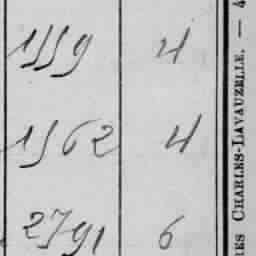 1559 4
1562 4
2791 6
RES CHARLES-LAVAUZELLE. — 4